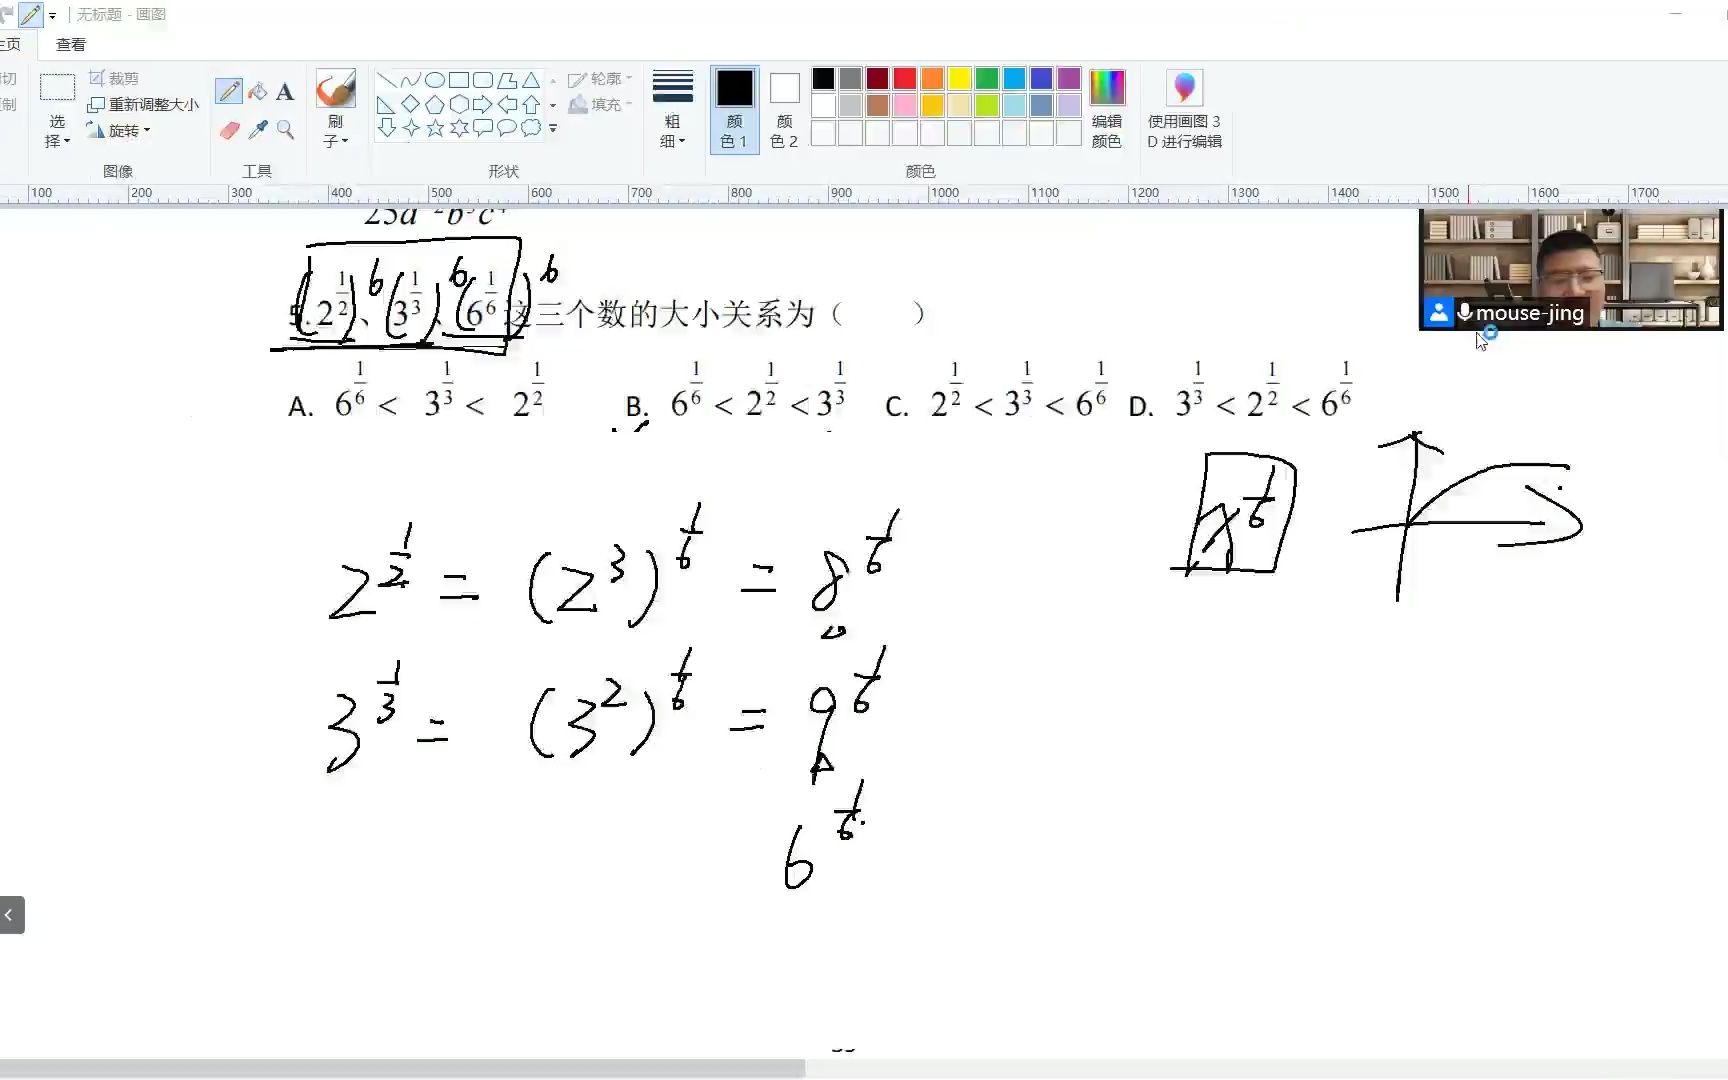 无标题 - 画图
主页 查看
裁剪
重新调整大小
旋转
选择
图像
A
工具
刷子
形状
轮廓
填充
粗细
颜色1
颜色2
颜色
编辑颜色
使用画图 3D 进行编辑
100 200 300 400 500 600 700 800 900 1000 1100 1200 1300 1400 1500 1600 1700
(2^{\frac{1}{2}})^6、(3^{\frac{1}{3}})^6、(6^{\frac{1}{6}})^6 这三个数的大小关系为（ ）
mouse-jing
A. 6^{\frac{1}{6}} < 3^{\frac{1}{3}} < 2^{\frac{1}{2}} B. 6^{\frac{1}{6}} < 2^{\frac{1}{2}} < 3^{\frac{1}{3}} C. 2^{\frac{1}{2}} < 3^{\frac{1}{3}} < 6^{\frac{1}{6}} D. 3^{\frac{1}{3}} < 2^{\frac{1}{2}} < 6^{\frac{1}{6}}
x^{\frac{1}{6}}
2^{\frac{1}{2}} = (2^3)^{\frac{1}{6}} = 8^{\frac{1}{6}}
3^{\frac{1}{3}} = (3^2)^{\frac{1}{6}} = 9^{\frac{1}{6}}
6^{\frac{1}{6}}